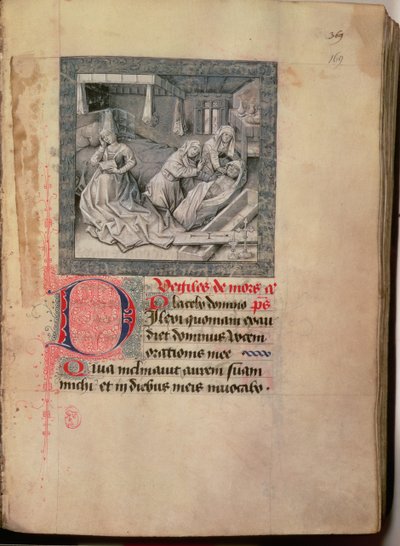 369
169
Vegiles de mors a͞
Placebo domino p͞s
Dilexi quoniam exau
diet dominus vocem
orationis mee
Quia inclinavit aurem suam
michi et in diebus meis invocabo